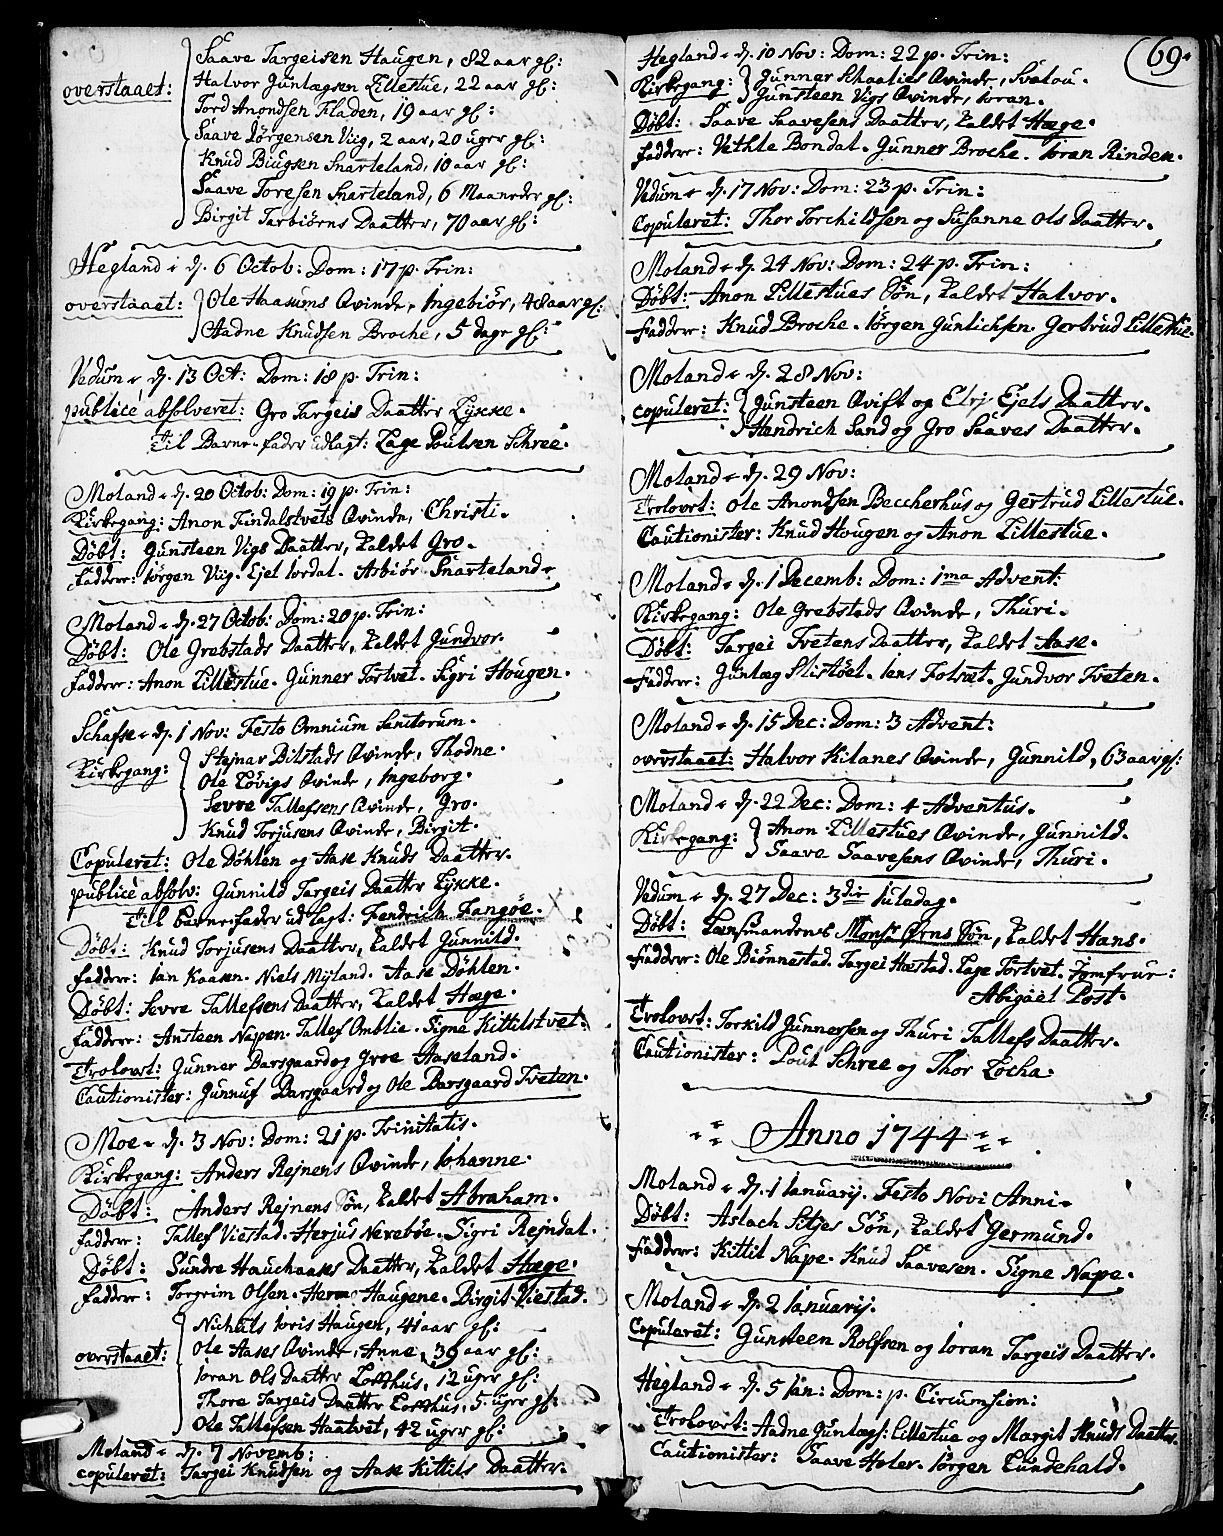 Saave Targeisen Haugen, 82 aar gl:
overstaaet: Halvor Guntlegsen Lillestue, 22 aar gl:
Tord Anondsen Fladen, 19 aar gl:
Saave Jørgensen Viig, 2 aar, 20 uger gl:
Knud Biugsen Snarteland, 10 aar gl:
Saave Toresen Snarteland, 6 Maaneder gl:
Birgit Tarbiørns Daatter, 70 aar gl:
Hegland d. 6 Octob: Dom: 17 p. Trin:
overstaaet: Ole Haasums Qvinde, Ingebiør, 48 aar gl:
Aadne Knudsen Broche, 5 dage gl:
Vedum d. 13 Oct: Dom: 18 p. Trin:
publicé absolveret: Gro Targeis Daatter Lykke.
Til Barne-fader udlagt: Lage Poulsen Schree.
Moland d. 20 Octob: Dom: 19 p. Trin:
Kirkegang: Anon Findalstvets Qvinde, Christi.
Døbt: Gunsteen Vigs Daatter, kaldet Gro.
Faddere: Jørgen Viig. Ejel Jordal. Asbiør Snarteland.
Moland d. 27 Octob: Dom: 20 p. Trin:
Døbt: Ole Grebstads Daatter, kaldet Gundvor.
Faddere: Anon Lillestue. Gunner Tortvet. Sigri Hougen.
Schafse d. 1 Nov: Festo Omnium Sanctorum.
Kirkegang: Stejnar Bilstads Qvinde, Thodne.
Ole Løvigs Qvinde, Ingeborg.
Sevre Tallefsens Qvinde, Gro.
Knud Torjusens Qvinde, Birgit.
Copuleret: Ole Døhlen og Aase Knuds Daatter.
publicé absolv: Gunnild Targeis Daatter Lykke.
Til barne-fader udlagt: Fendrich Fangøe.
Døbt: Knud Torjusens Daatter, kaldet Gunnild.
Faddere: Jan Kaasen. Niels Myland. Aase Døhlen.
Døbt: Sevre Tallefsens Daatter, kaldet Hæge.
Faddere: Ansteen Napen. Tallef Omblie. Signe Kittilstvet.
Trolovet: Gunner Barsgaard og Groe Aaseland.
Cautionister: Gunnuf Barsgaard og Ole Barsgaard Tveten.
Moe d. 3 Nov: Dom: 21 p. Trinitatis.
Kirkegang: Anders Rejnens Qvinde, Johanne.
Døbt: Anders Rejnens Søn, kaldet Abraham.
Faddere: Tallef Viestad. Herjus Nerebøe. Sigri Rejndal.
Døbt: Sundre Hauchaaes Daatter, kaldet Hæge.
Faddere: Torgrim Olsen. Haugene. Birgit Viestad.
Nichuls Joris Haugen, 41 aar gl:
overstaaet: Ole Aases Qvinde, Anne, 39 aar gl:
Joran Ols Daatter, 12 uger gl:
Thore Targeis Daatter, 5 uger gl:
Ole Tallefsen Haatvet, 42 uger gl:
Moland d. 7 Novemb:
copuleret: Targei Knudsen og Aase Kittils Daatter.
69.
Hegland d. 10 Nov: Dom: 22 p. Trin:
Kirkegang: Gunner Qvinde, Svalou.
Gunsteen Vigs Qvinde, Joran.
Døbt: Saave Saavesens Daatter, kaldet Hæge.
Faddere: Vethle Bondal. Gunner Broche. Joran Rinden.
Vedum d. 17 Nov: Dom: 23 p. Trin:
Copuleret: Thor Torchildsen og Susanne Ols Daatter.
Moland d. 24 Nov: Dom: 24 p. Trin:
Døbt: Anon Lillestues Søn, kaldet Halvor.
Faddere: Knud Broche. Jørgen Gunlichsen. Gertrud Lillestue.
Moland d. 28 Nov:
copuleret: Gunsteen Qvift og Elej Ejels Daatter.
Hendrich Sand og Gro Saaves Daatter.
Moland d. 29 Nov:
Trolovet: Ole Anondsen Beccherhus og Gertrud Lillestue.
Cautionister: Knud Hougen og Anon Lillestue.
Moland d. 1 Decemb: Dom: 1ma Advent:
Kirkegang: Ole Grebstads Qvinde, Thuri.
Døbt: Targei Tvetens Daatter, kaldet Aase.
Faddere: Guntleg Slistøel. Jens Folsæt. Gundvor Tveten.
Moland d. 15 Dec: Dom: 3 Advent:
overstaaet: Halvor Kilanes Qvinde, Gunnild, 63 aar gl:
Moland d. 22 Dec: Dom: 4 Adventus.
Kirkegang: Anon Lillestues Qvinde, Gunnild.
Saave Saavesens Qvinde, Thuri.
Vedum d. 27 Dec: 3die Juledag.
Døbt: Lensmandens Monsr Ørns Søn, kaldet Hans.
Faddere: Ole Biønnestad. Targei Hæstad. Lage Tortvet. Jomfrue:
Abigael Post.
Trolovet: Torkild Gunnersen og Thuri Tallefs Daatter.
Cautionister: Poul Schree og Thor Locha.
Anno 1744
Moland d. 1 Januarij. Festo Novi Anni
Døbt: Aslach Sitjes Søn, kaldet Germund.
Faddere: Kittil Nape. Knud Saavesen. Signe Nape.
Moland d. 2 Januarij.
Copuleret: Gunsteen Rolfsen og Joran Targeis Daatter.
Hegland d. 5 Jan: Dom: p. Circumsion:
Trolovet: Aadne Guntlegs: Lillestue og Margit Knuds Daatter.
Cautionister: Saave Holer. Jørgen Lundehald.